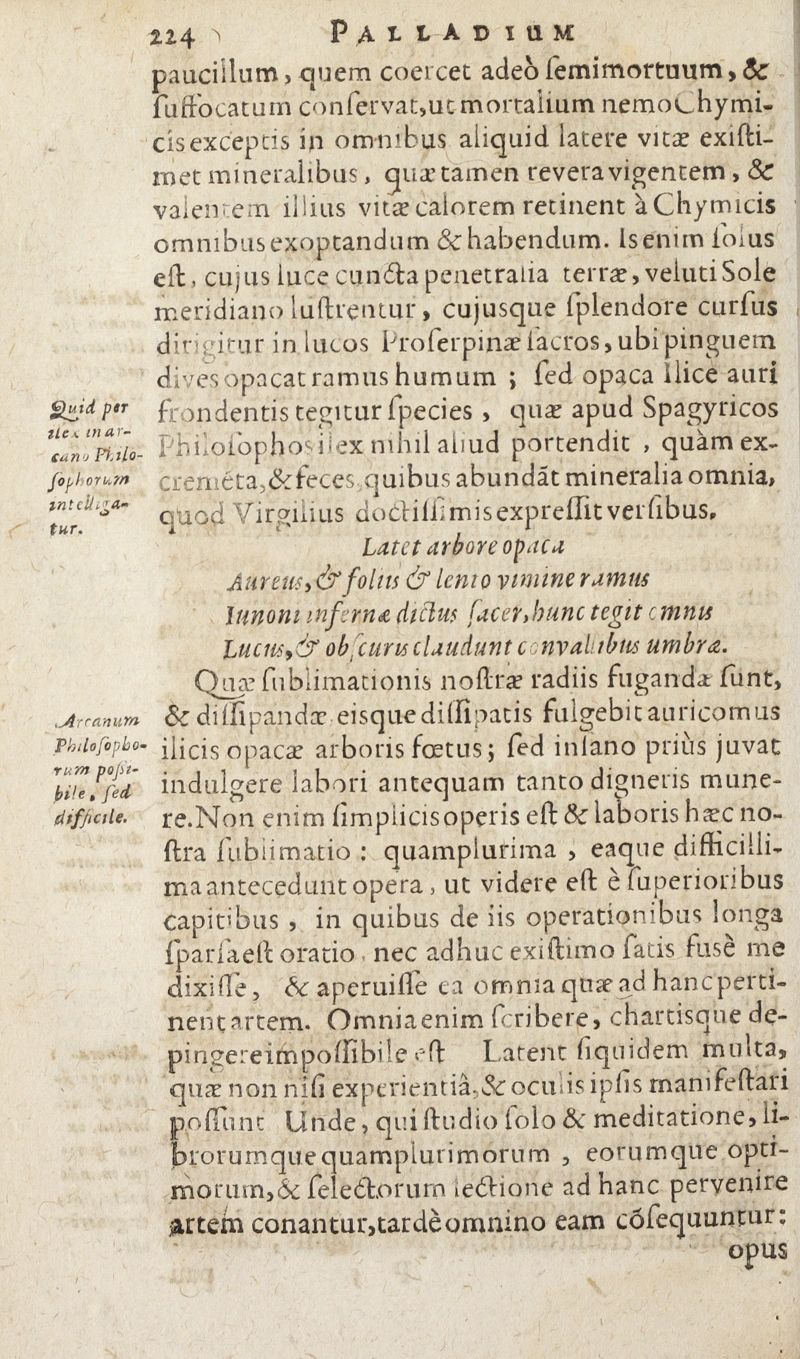 224 PALLADIUM
paucillum, quem coercet adeò ſemimortuum, &
ſuffocatum conſervat, ut mortalium nemo Chymi-
cis exceptis in omnibus aliquid latere vitæ exiſti-
met mineralibus, quæ tamen revera vigentem, &
valentem illius vitæ calorem retinent à Chymicis
omnibus exoptandum & habendum. Is enim ſolus
eſt, cujus luce cuncta penetralia terræ, veluti Sole
meridiano luſtrentur, cujusque ſplendore curſus
dirigitur in lucos Proſerpinæ ſacros, ubi pinguem
dives opacat ramus humum ; ſed opaca ilice auri
frondentis tegitur ſpecies, quæ apud Spagyricos
Philoſophos ilex nihil aliud portendit, quàm ex-
cremēta, & feces, quibus abundāt mineralia omnia,
quod Virgilius doctiſſimis expreſſit verſibus,
Latet arbore opaca
Aureus, & foliis & lento vimine ramus
Iunoni infernæ dictus ſacer, hunc tegit omnis
Lucus, & obſcuris claudunt convallibus umbræ.
Quæ ſublimationis noſtræ radiis fugandæ ſunt,
& diſſipandæ eisque diſſipatis fulgebit auricomus
ilicis opacæ arboris fœtus; ſed inſano priùs juvat
indulgere labori antequam tanto digneris mune-
re. Non enim ſimplicis operis eſt & laboris hæc no-
ſtra ſublimatio : quamplurima, eaque difficilli-
ma antecedunt opera, ut videre eſt è ſuperioribus
capitibus, in quibus de iis operationibus longa
ſparſa eſt oratio, nec adhuc exiſtimo ſatis fusè me
dixiſſe, & aperuiſſe ea omnia quæ ad hanc perti-
nent artem. Omnia enim ſcribere, chartisque de-
pingere impoſſibile eſt Latent ſiquidem multa,
quæ non niſi experientiâ, & oculis ipſis manifeſtari
poſſunt Unde, qui ſtudio ſolo & meditatione, li-
brorumque quamplurimorum, eorumque opti-
morum, & ſelectorum lectione ad hanc pervenire
artem conantur, tardè omnino eam cōſequuntur:
opus
Quid per
ilex in ar-
cano Philo-
ſophorum
intelliga-
tur.
Arcanum
Philoſopho-
rum poſſi-
bile, ſed
difficile.